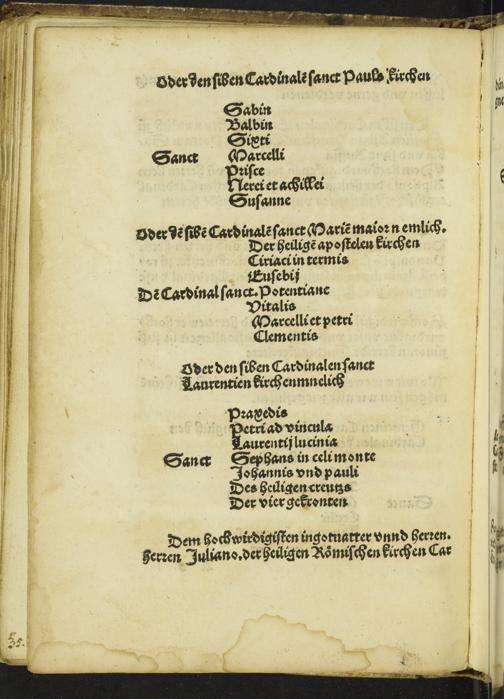 Oder den siben Cardinalē sanct Pauls kirchen
Sabin
Balbin
Sixti
Sanct Marcelli
Prisce
Nerei et achillei
Susanne
Oder dē sibē Cardinalē sanct Mariē maior n emlich.
Der heiligē apostelen kirchen
Ciriaci in termis
Eusebij
Dē Cardinal sanct. Potentiane
Vitalis
Marcelli et petri
Clementis
Oder den siben Cardinalen sanct
Laurentien kirchenmnelich
Praxedis
Petri ad vincula
Laurentij lucinia
Sanct Sephans in celi monte
Johannis vnd pauli
Des heiligen creutzs
Der vier gekronten
Dem hochwirdigisten ingotuatter vnnd herren.
herren Juliano. der heiligen Römischen kirchen Car
35.